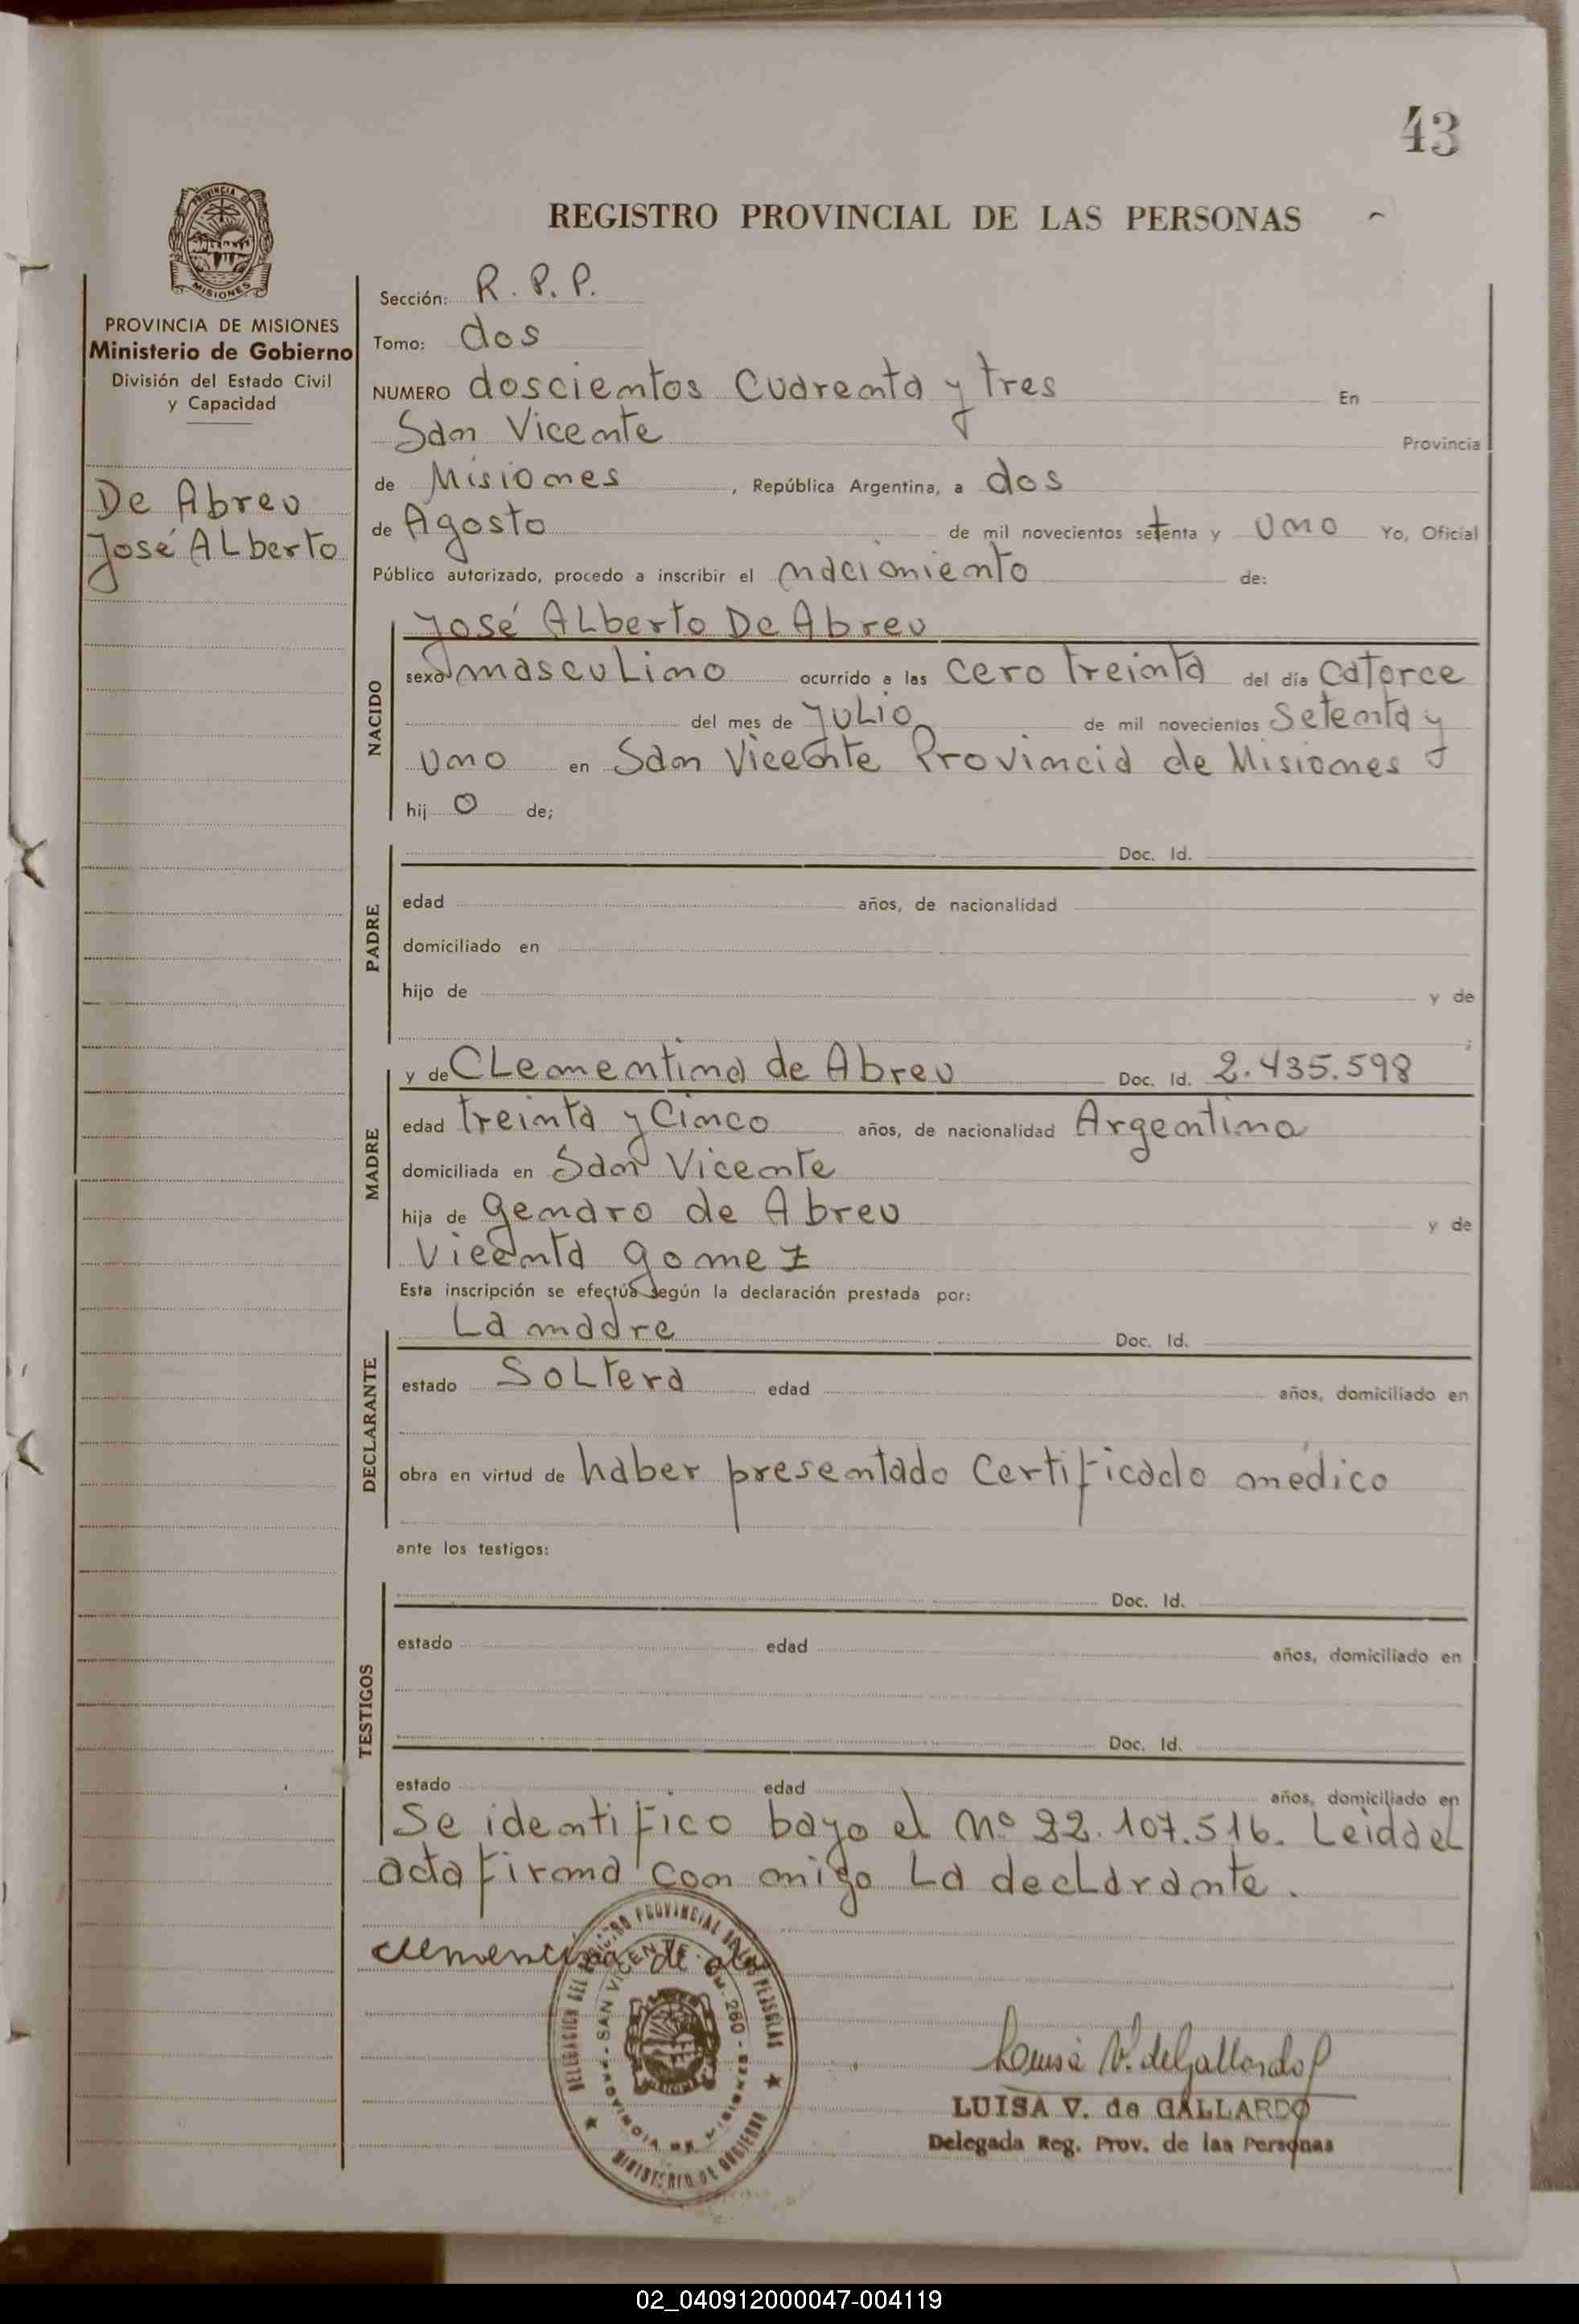 43
PROVINCIA DE MISIONES
Ministerio de Gobierno
División del Estado Civil
y Capacidad
De Abreu
José ALberto
REGISTRO PROVINCIAL DE LAS PERSONAS
Sección: R. P. P.
Tomo: dos
NUMERO doscientos cuarenta y tres En
San Vicente Provincia
de Misiones, República Argentina, a dos
de Agosto de mil novecientos setenta y uno Yo, Oficial
Público autorizado, procedo a inscribir el nacimiento de:
NACIDO
José ALberto De Abreu
sexo masculino ocurrido a las cero treinta del día catorce
del mes de JULio de mil novecientos setenta y
uno en San Vicente Provincia de Misiones
hijo de;
PADRE
Doc. Id.
edad años, de nacionalidad
domiciliado en
hijo de y de
MADRE
y de CLementina de Abreu Doc. Id. 2.435.598
edad treinta y cinco años, de nacionalidad Argentina
domiciliada en San Vicente
hija de Genaro de Abreu y de
Vicenta Gomez
Esta inscripción se efectúa según la declaración prestada por:
DECLARANTE
La madre Doc. Id.
estado SoLtera edad años, domiciliado en
obra en virtud de haber presentado certificado médico
ante los testigos:
TESTIGOS
Doc. Id.
estado edad años, domiciliado en
Doc. Id.
estado edad años, domiciliado en
Se identifico bayo el Nº 22.107.516. Leida el
acta firma con migo La decLarante.
clemencina de
PROVINCIA DE MISIONES
MINISTERIO DE GOBIERNO
Luisa V. de Gallardo
LUISA V. de GALLARDO
Delegada Reg. Prov. de las Personas
02_040912000047-004119